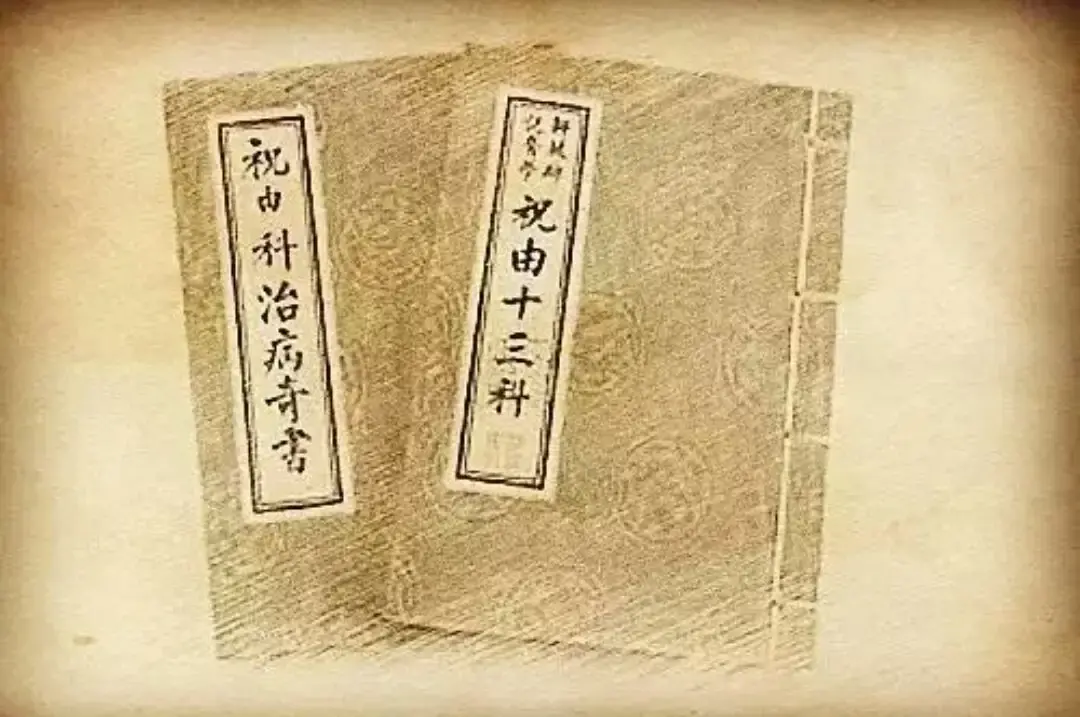 祝由十三科
祝由科治病奇書